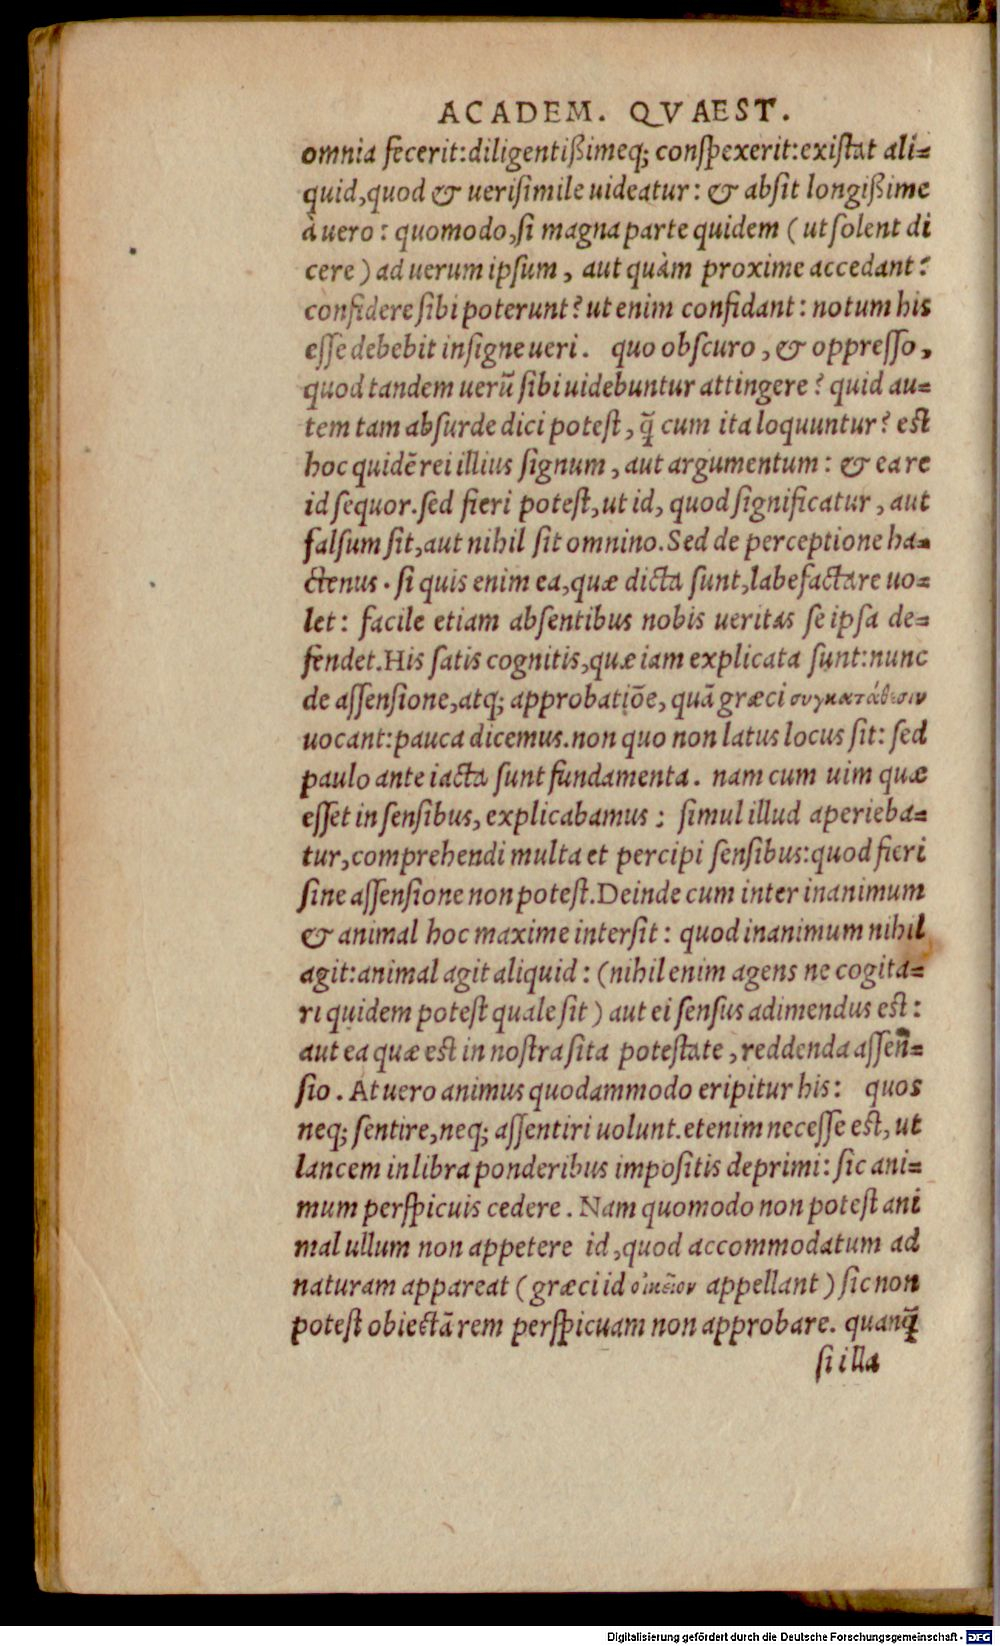 ACADEM. QVAEST.
omnia fecerit:diligentißimeq; conspexerit:existat ali=
quid,quod & uerisimile uideatur: & absit longißime
à uero: quomodo,si magna parte quidem ( ut solent di
cere ) ad uerum ipsum, aut quàm proxime accedant?
confidere sibi poterunt? ut enim confidant: notum his
esse debebit insigne ueri. quo obscuro, & oppresso,
quod tandem uerũ sibi uidebuntur attingere? quid au=
tem tam absurde dici potest, q̃ cum ita loquuntur? est
hoc quidẽ rei illius signum, aut argumentum: & ea re
id sequor. sed fieri potest, ut id, quod significatur, aut
falsum sit, aut nihil sit omnino. Sed de perceptione ha=
ctenus. si quis enim ea, quæ dicta sunt, labefactare uo=
let: facile etiam absentibus nobis ueritas se ipsa de=
fendet. His satis cognitis, quæ iam explicata sunt: nunc
de assensione, atq; approbatiõe, quã græci συγκατάθεσιν
uocant: pauca dicemus. non quo non latus locus sit: sed
paulo ante iacta sunt fundamenta. nam cum uim quæ
esset in sensibus, explicabamus: simul illud aperieba=
tur, comprehendi multa et percipi sensibus: quod fieri
sine assensione non potest. Deinde cum inter inanimum
& animal hoc maxime intersit: quod inanimum nihil
agit: animal agit aliquid: (nihil enim agens ne cogita=
ri quidem potest quale sit ) aut ei sensus adimendus est:
aut ea quæ est in nostra sita potestate, reddenda assen=
sio. At uero animus quodammodo eripitur his: quos
neq; sentire, neq; assentiri uolunt. etenim necesse est, ut
lancem in libra ponderibus impositis deprimi: sic ani=
mum perspicuis cedere. Nam quomodo non potest ani
mal ullum non appetere id, quod accommodatum ad
naturam appareat ( græci id οἰκεῖον appellant ) sic non
potest obiectã rem perspicuam non approbare. quanq̃
si illa
Digitalisierung gefördert durch die Deutsche Forschungsgemeinschaft - DFG